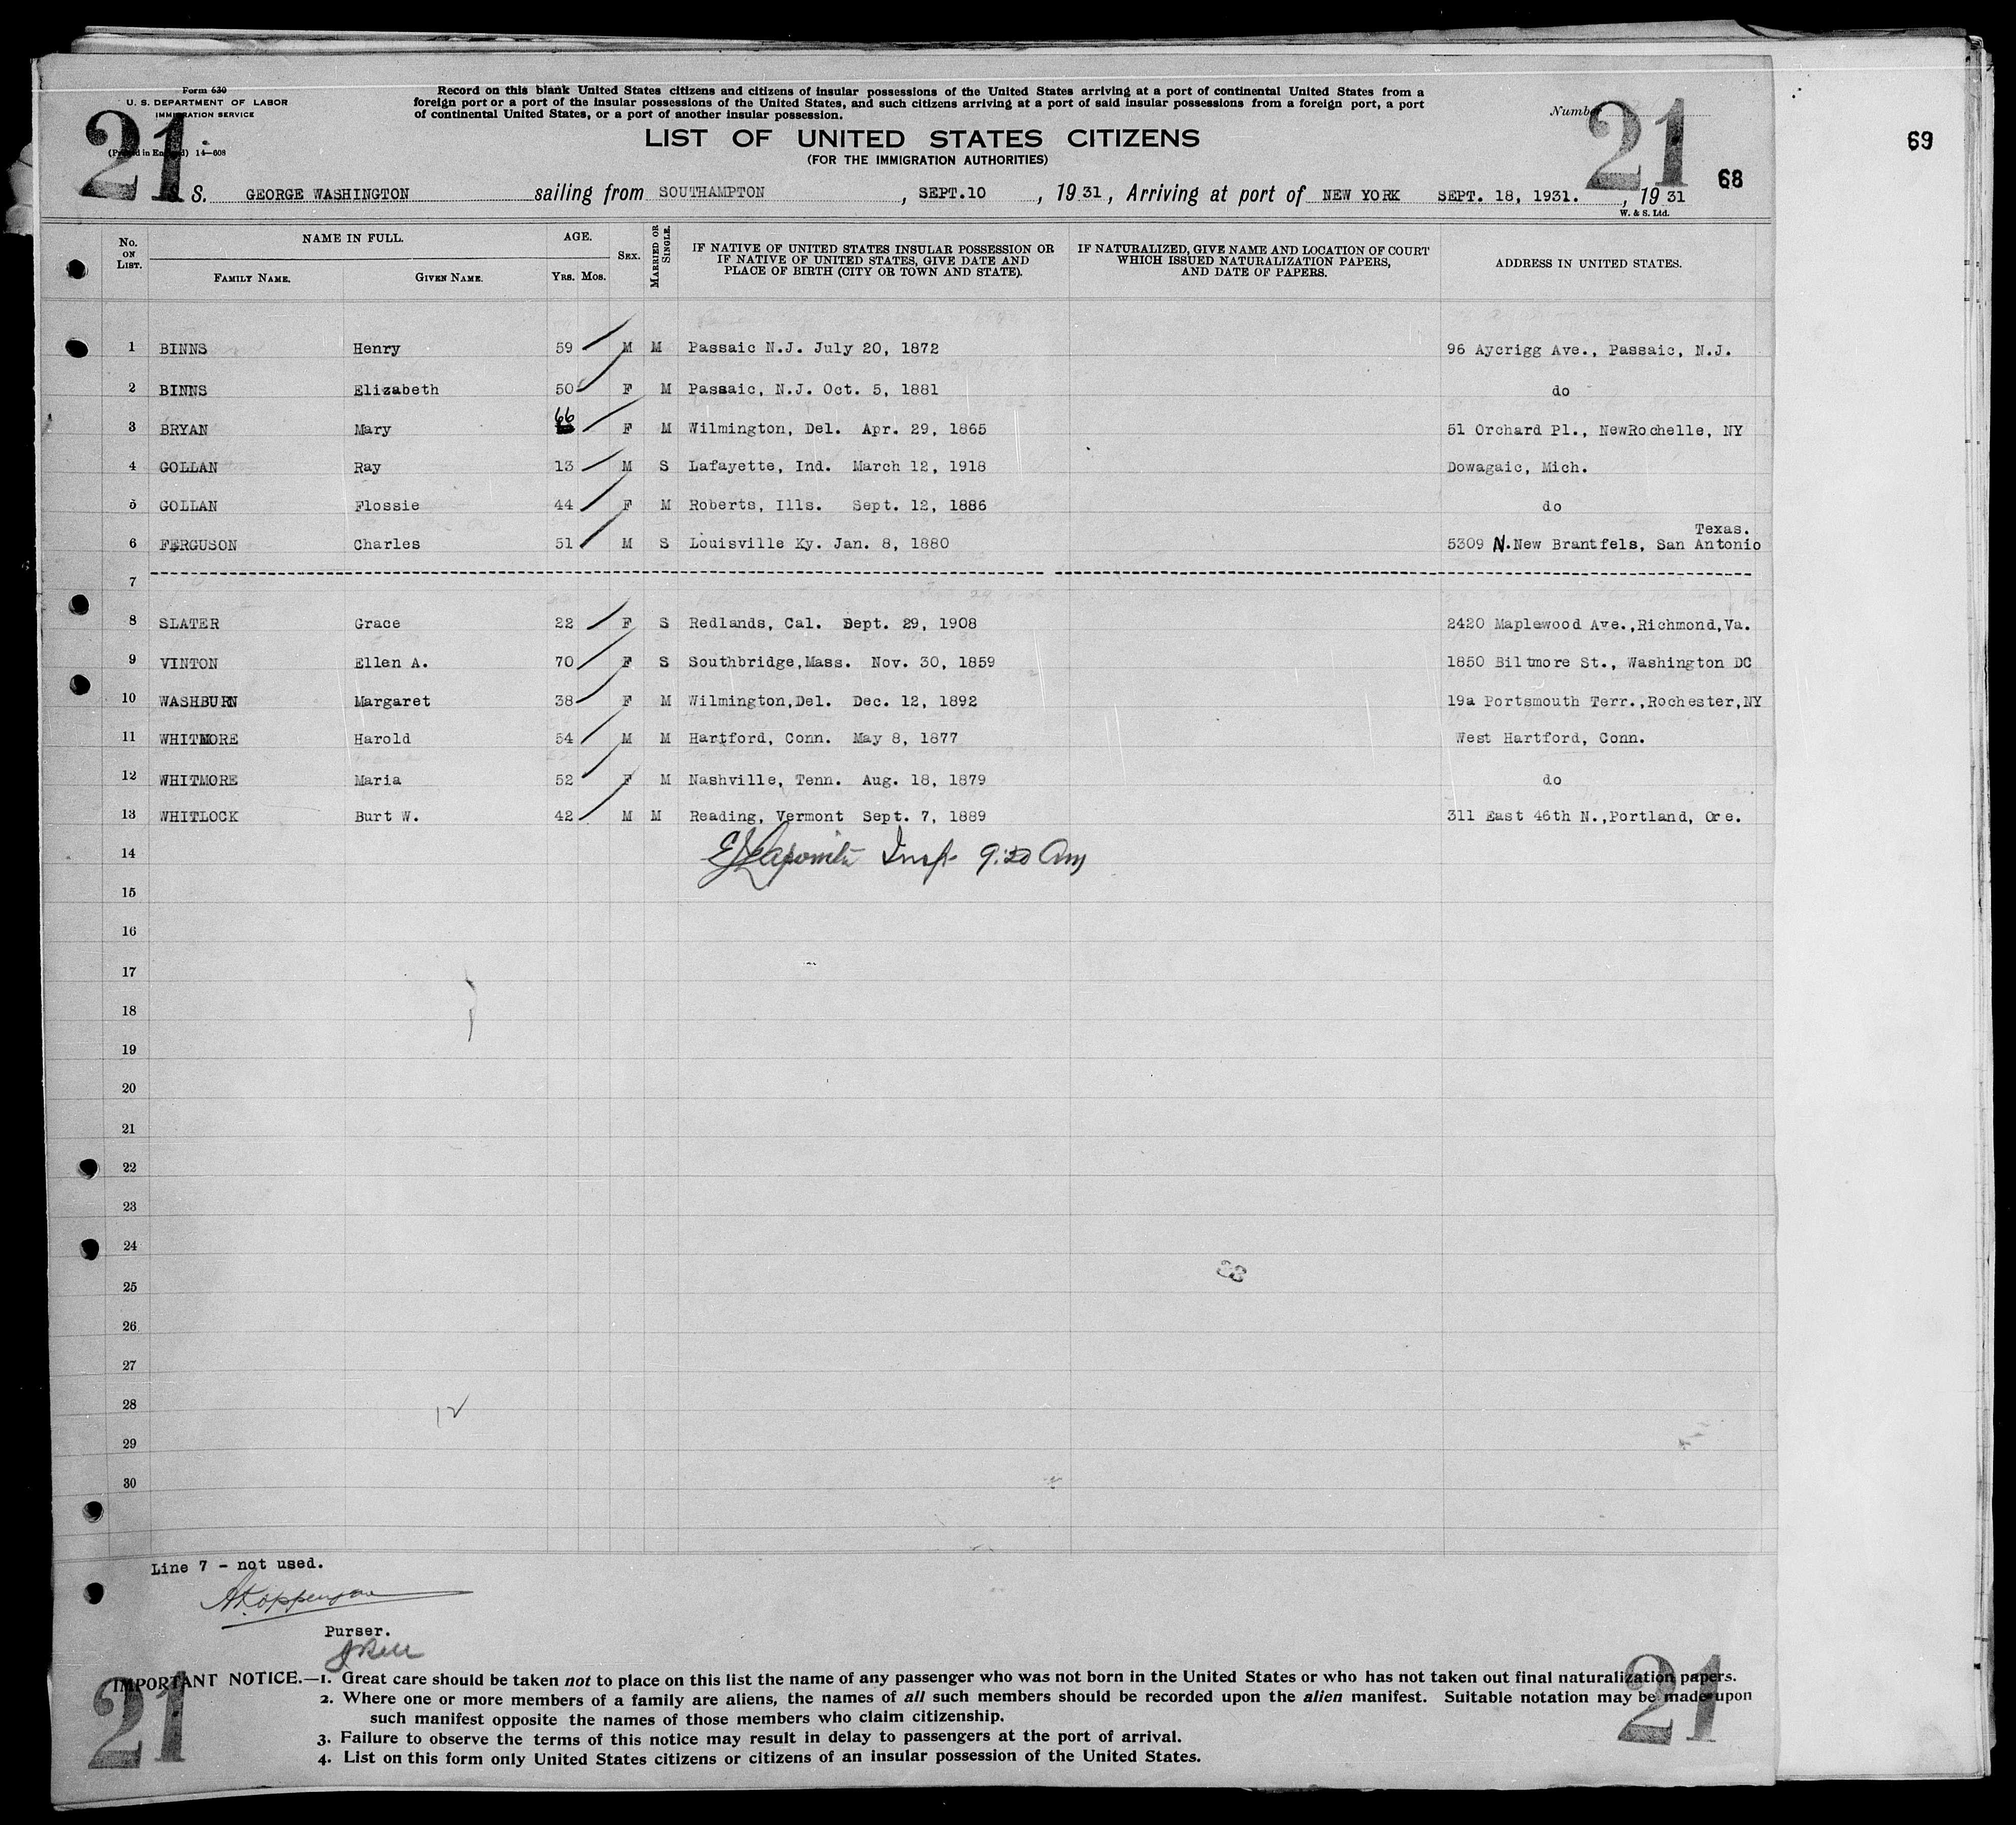 Form 630
U. S. DEPARTMENT OF LABOR
IMMIGRATION SERVICE
(Printed in England) 14—608
21
Record on this blank United States citizens and citizens of insular possessions of the United States arriving at a port of continental United States from a
foreign port or a port of the insular possessions of the United States, and such citizens arriving at a port of said insular possessions from a foreign port, a port
of continental United States, or a port of another insular possession.
Number
21
69
LIST OF UNITED STATES CITIZENS
(FOR THE IMMIGRATION AUTHORITIES)
68
S. GEORGE WASHINGTON sailing from SOUTHAMPTON, SEPT.10, 1931, Arriving at port of NEW YORK SEPT. 18, 1931., 1931
W. & S. Ltd.
No. ON LIST. NAME IN FULL. FAMILY NAME. GIVEN NAME. AGE. YRS. MOS. SEX. MARRIED OR SINGLE. IF NATIVE OF UNITED STATES INSULAR POSSESSION OR IF NATIVE OF UNITED STATES, GIVE DATE AND PLACE OF BIRTH (CITY OR TOWN AND STATE). IF NATURALIZED, GIVE NAME AND LOCATION OF COURT WHICH ISSUED NATURALIZATION PAPERS, AND DATE OF PAPERS. ADDRESS IN UNITED STATES.
1 BINNS Henry 59 M M Passaic N.J. July 20, 1872 96 Aycrigg Ave., Passaic, N.J.
2 BINNS Elizabeth 50 F M Passaic, N.J. Oct. 5, 1881 do
3 BRYAN Mary 66 F M Wilmington, Del. Apr. 29, 1865 51 Orchard Pl., NewRochelle, NY
4 GOLLAN Ray 13 M S Lafayette, Ind. March 12, 1918 Dowagaic, Mich.
5 GOLLAN Flossie 44 F M Roberts, Ills. Sept. 12, 1886 do
Texas.
6 FERGUSON Charles 51 M S Louisville Ky. Jan. 8, 1880 5309 N.New Brantfels, San Antonio
7
8 SLATER Grace 22 F S Redlands, Cal. Sept. 29, 1908 2420 Maplewood Ave.,Richmond,Va.
9 VINTON Ellen A. 70 F S Southbridge,Mass. Nov. 30, 1859 1850 Biltmore St., Washington DC
10 WASHBURN Margaret 38 F M Wilmington,Del. Dec. 12, 1892 19a Portsmouth Terr.,Rochester,NY
11 WHITMORE Harold 54 M M Hartford, Conn. May 8, 1877 West Hartford, Conn.
12 WHITMORE Maria 52 F M Nashville, Tenn. Aug. 18, 1879 do
13 WHITLOCK Burt W. 42 M M Reading, Vermont Sept. 7, 1889 311 East 46th N.,Portland, Ore.
14 Insp 9:20 Am
15
16
17
18
19
20
21
22
23
24
25
26
27
28
29
30
12
Line 7 - not used.
Purser.
IMPORTANT NOTICE.—1. Great care should be taken not to place on this list the name of any passenger who was not born in the United States or who has not taken out final naturalization papers.
2. Where one or more members of a family are aliens, the names of all such members should be recorded upon the alien manifest. Suitable notation may be made upon
such manifest opposite the names of those members who claim citizenship.
3. Failure to observe the terms of this notice may result in delay to passengers at the port of arrival.
4. List on this form only United States citizens or citizens of an insular possession of the United States.
21
21